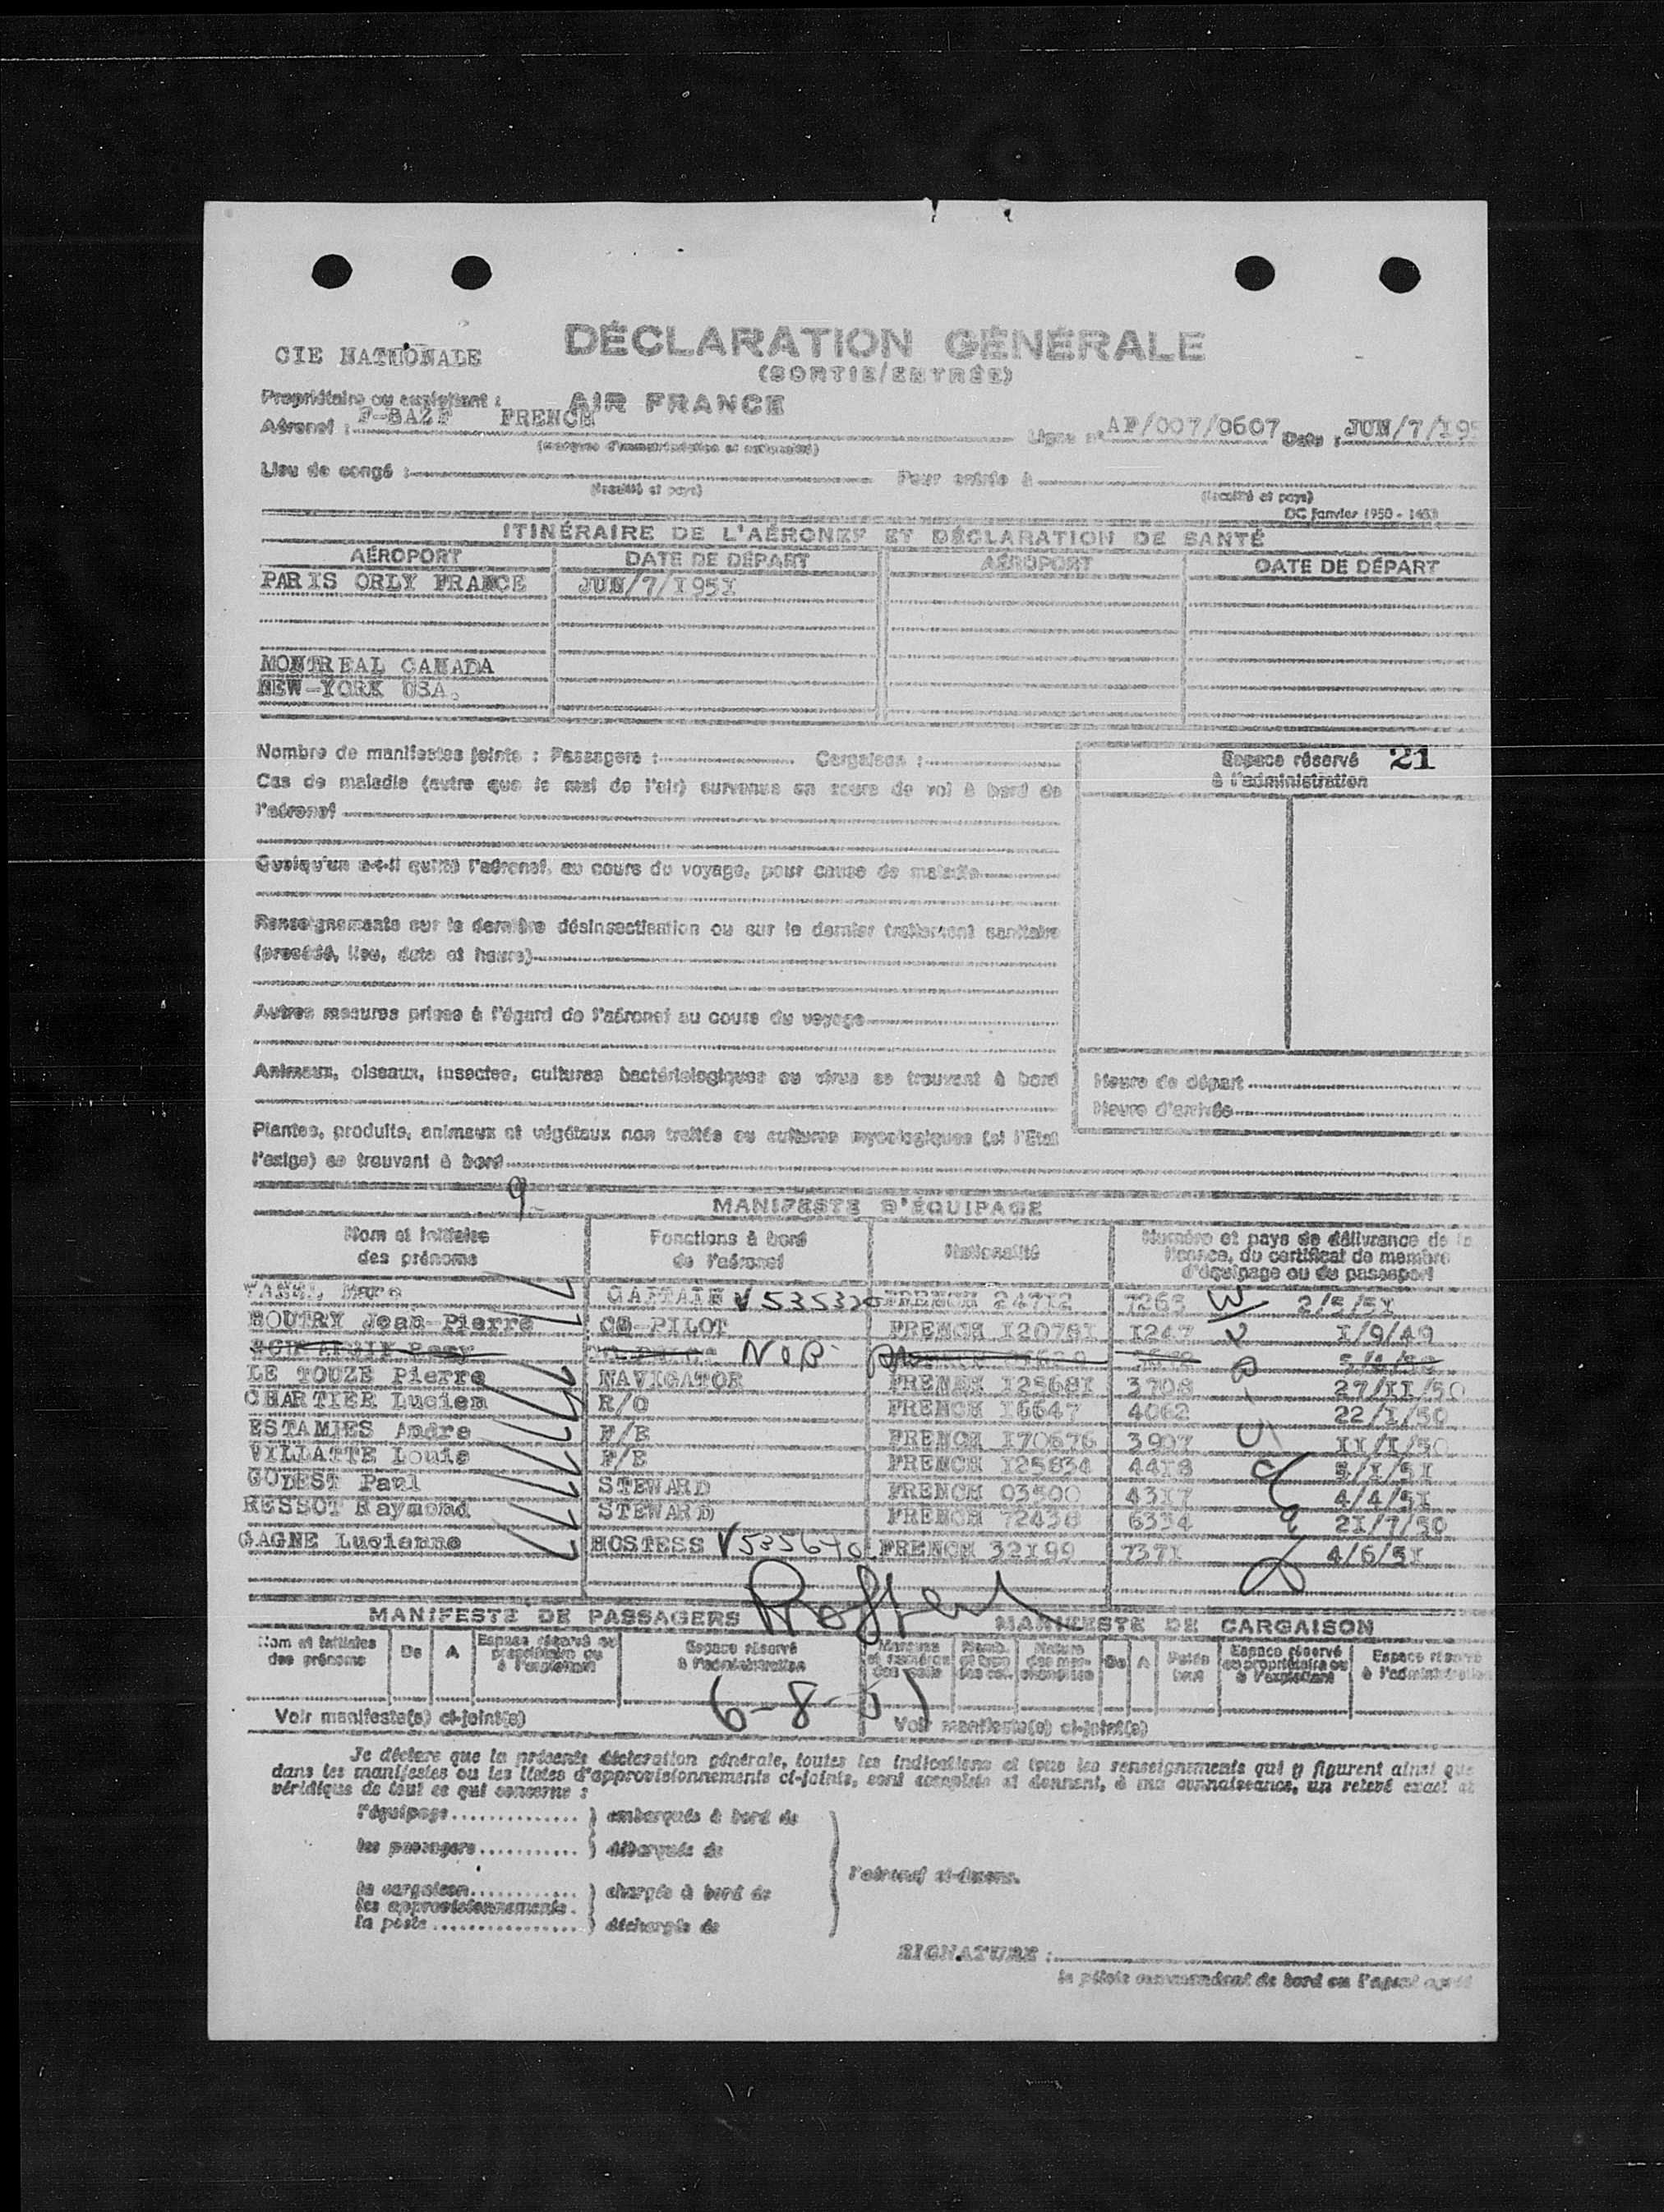 CIE NATIONALE
DÉCLARATION GÉNÉRALE
(SORTIE/ENTRÉE)
Propriétaire ou exploitant : AIR FRANCE
Aéronef : F-BAZF FRENCH Ligne n° AF/007/0607 Date : JUN/7/195
(marques d'immatriculation et nationalité)
Lieu de congé : Pour entrée à
(localité et pays) (localité et pays)
DC Janvier 1950 - 1483
ITINÉRAIRE DE L'AÉRONEF ET DÉCLARATION DE SANTÉ
AÉROPORT DATE DE DÉPART AÉROPORT DATE DE DÉPART
PARIS ORLY FRANCE JUN/7/I95I
MONTREAL CANADA
NEW-YORK USA.
Nombre de manifestes joints : Passagers : Cargaison :
Espace réservé 21
à l'administration
Cas de maladie (autre que le mal de l'air) survenus en cours de vol à bord de
l'aéronef
Quelqu'un a-t-il quitté l'aéronef, au cours du voyage, pour cause de maladie
Renseignements sur la dernière désinsectisation ou sur le dernier traitement sanitaire
(procédé, lieu, date et heure)
Autres mesures prises à l'égard de l'aéronef au cours du voyage
Animaux, oiseaux, insectes, cultures bactériologiques ou virus se trouvant à bord
Heure de départ
Heure d'arrivée
Plantes, produits, animaux et végétaux non traités ou cultures mycologiques (si l'Etat
l'exige) se trouvant à bord
9
MANIFESTE D'ÉQUIPAGE
Nom et initiales des prénoms
Fonctions à bord de l'aéronef
Nationalité
Numéro et pays de délivrance de la licence, du certificat de membre d'équipage ou du passeport
Marc CAPTAIN V535320 FRENCH 24712 7263 2/5/5I
BOUTRY Jean-Pierre CO-PILOT FRENCH I2078I I247 I/9/49
NOB
LE TOUZE Pierre NAVIGATOR FRENCH I2568I 3708 27/II/50
CHARTIER Lucien R/O FRENCH I6647 4062 22/I/50
ESTAMIES Andre F/E FRENCH I70676 3907 II/I/50
VILLAITE Louis F/E FRENCH I25834 44I8 5/I/5I
GODEST Paul STEWARD FRENCH 03500 43I7 4/4/5I
RESSOT Raymond STEWARD FRENCH 72438 6334 2I/7/50
GAGNE Lucienne HOSTESS V535640 FRENCH 32I99 737I 4/6/5I
MANIFESTE DE PASSAGERS MANIFESTE DE CARGAISON
Nom et initiales des prénoms
De A
Espace réservé au propriétaire ou à l'exploitant
Espace réservé à l'administration
Marques et numéros des colis
Nature des marchandises
De A
Poids brut
Espace réservé au propriétaire ou à l'exploitant
Espace réservé à l'administration
6-8-51
Voir manifeste(s) ci-joint(s) Voir manifeste(s) ci-joint(s)
Je déclare que la présente déclaration générale, toutes les indications et tous les renseignements qui y figurent ainsi que
dans les manifestes ou les listes d'approvisionnements ci-joints, sont complets et donnent, à ma connaissance, un relevé exact et
véridique de tout ce qui concerne :
l'équipage.............. ) embarqués à bord de
les passagers........... ) débarqués de
l'aéronef ci-dessus.
la cargaison............ ) chargés à bord de
les approvisionnements.
la poste................ ) déchargés de
SIGNATURE :
le pilote commandant de bord ou l'agent agréé